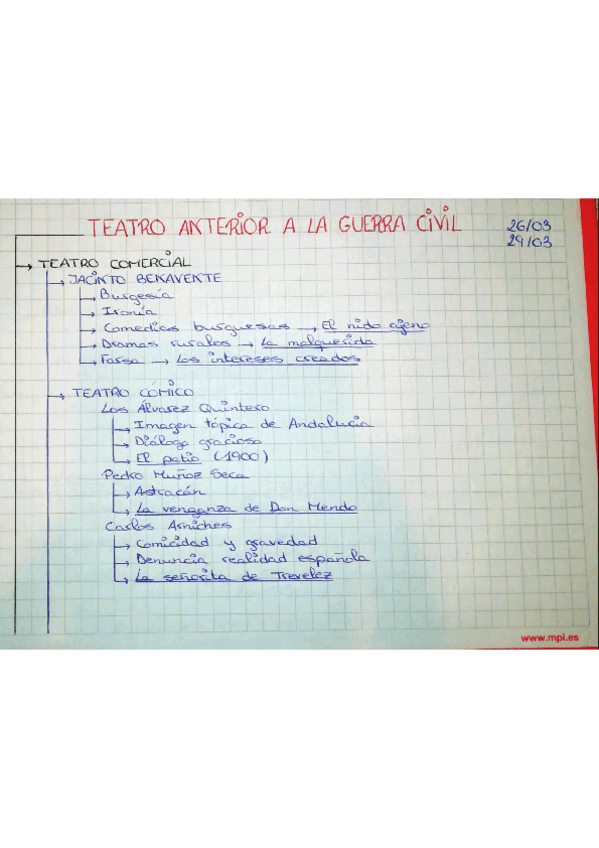 TEATRO ANTERIOR A LA GUERRA CIVIL
26/03
29/03
→ TEATRO COMERCIAL
→ JACINTO BENAVENTE
→ Burgesía
→ Ironía
→ Comedias burguesas → El nido ajeno
→ Dramas rurales → La malquerida
→ Farsa → Los intereses creados
→ TEATRO CÓMICO
Los Álvarez Quintero
→ Imagen tópica de Andalucía
→ Diálogo gracioso
→ El patio (1900)
Pedro Muñoz Seca
→ Astracán
→ La venganza de Don Mendo
Carlos Arniches
→ Comicidad y gravedad
→ Denuncia realidad española
→ La señorita de Trevelez
www.mpl.es